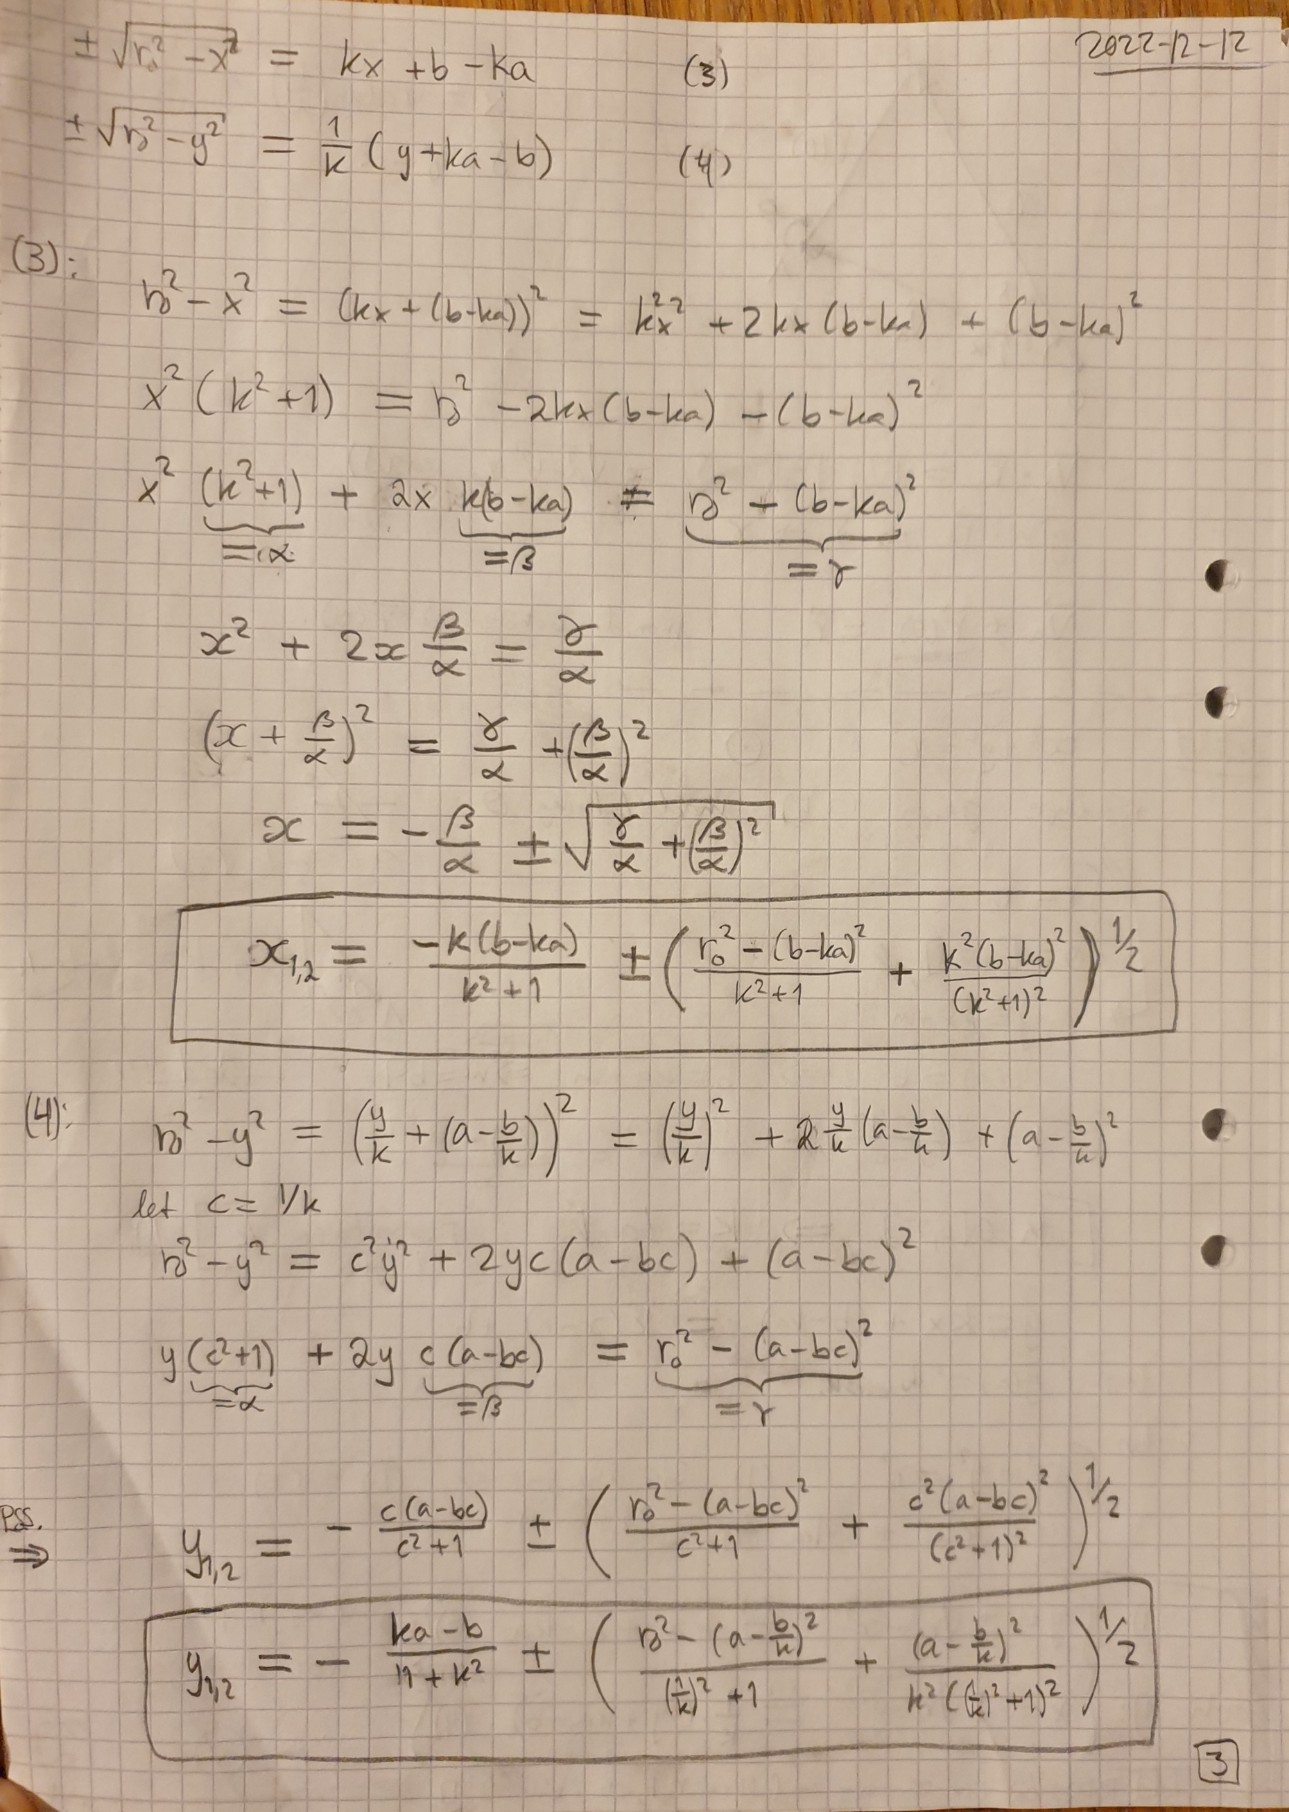 2022-12-12
± √(r₀² - x²) = kx + b - ka (3)
± √(r₀² - y²) = 1/k (y + ka - b) (4)
(3):
r₀² - x² = (kx + (b-ka))² = k²x² + 2kx(b-ka) + (b-ka)²
x² (k²+1) = r₀² - 2kx(b-ka) - (b-ka)²
x² (k²+1) + 2x k(b-ka) = r₀² - (b-ka)²
=α =β =γ
x² + 2x β/α = γ/α
(x + β/α)² = γ/α + (β/α)²
x = - β/α ± √(γ/α + (β/α)²)
x₁,₂ = -k(b-ka)/(k²+1) ± ( (r₀² - (b-ka)²)/(k²+1) + k²(b-ka)²/(k²+1)² )^1/2
(4):
r₀² - y² = (y/k + (a - b/k))² = (y/k)² + 2 y/k (a - b/k) + (a - b/k)²
let c = 1/k
r₀² - y² = c²y² + 2yc(a-bc) + (a-bc)²
y(c²+1) + 2y c(a-bc) = r₀² - (a-bc)²
=α =β =γ
pss.
⇒ y₁,₂ = - c(a-bc)/(c²+1) ± ( (r₀² - (a-bc)²)/(c²+1) + c²(a-bc)²/(c²+1)² )^1/2
y₁,₂ = - (ka-b)/(1+k²) ± ( (r₀² - (a - b/k)²)/((1/k)²+1) + (a - b/k)²/(k²((1/k)²+1)²) )^1/2
3